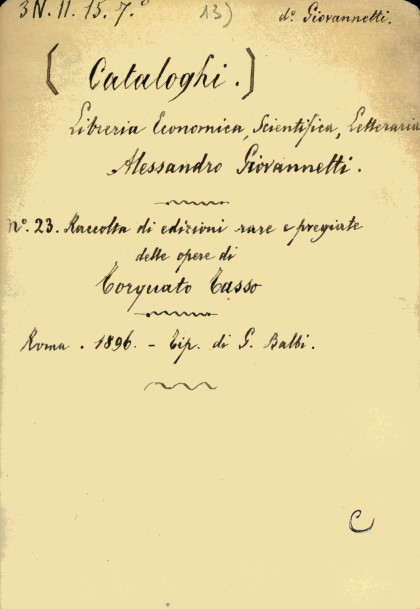 3 N. 11. 15. 7.° 13) d°. Giovannetti.
[ Cataloghi. ]
Libreria Economica, Scientifica, Letteraria
Alessandro Giovannetti.
N°. 23. Raccolta di edizioni rare e pregiate
delle opere di
Torquato Tasso
Roma. 1896. - Tip. di G. Balbi.
C